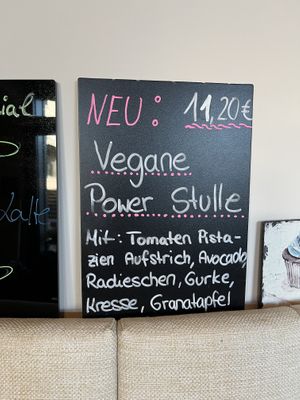 ial
Latte
NEU: 11,20€
Vegane
Power Stulle
Mit: Tomaten Pista-
zien Aufstrich, Avocado,
Radieschen, Gurke,
Kresse, Granatapfel